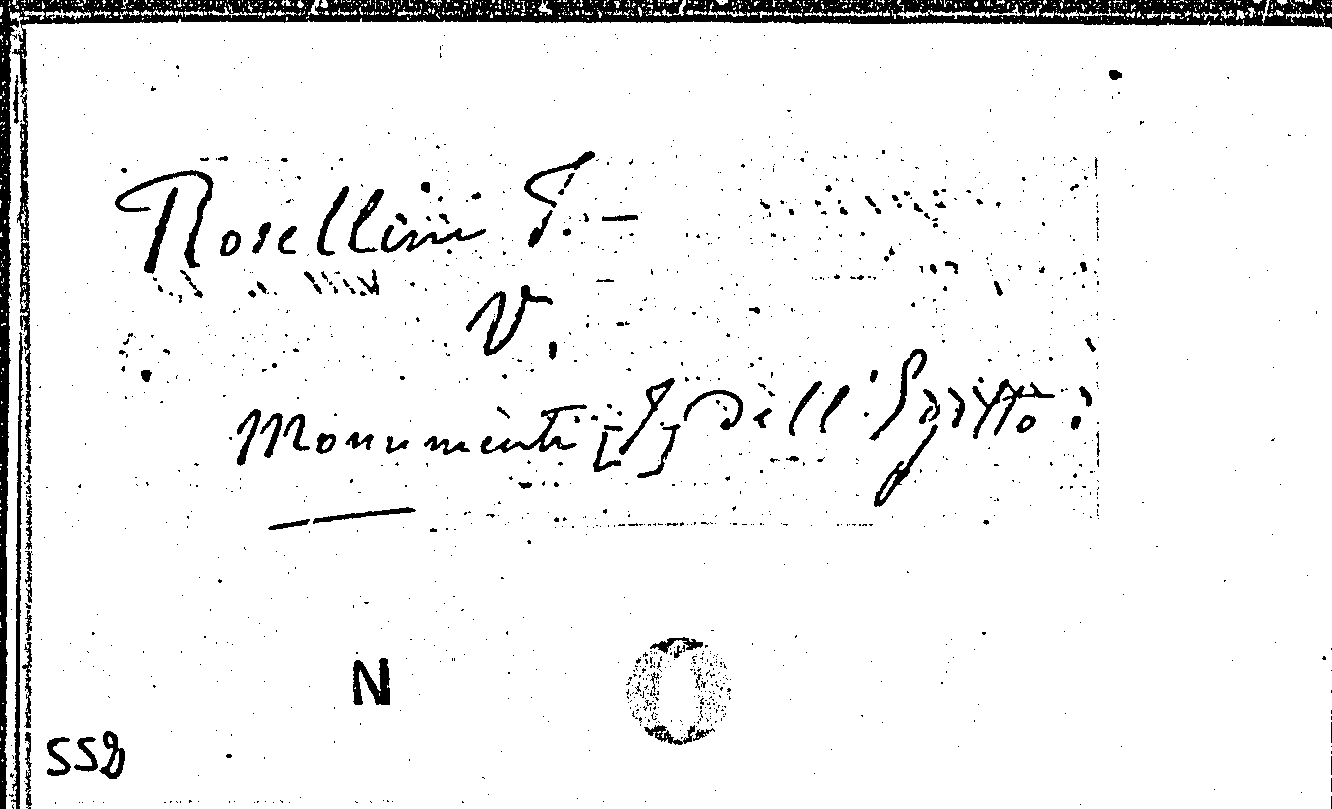 Rosellini I. —
V.
Monumenti [I] dell'Egitto:
N
558